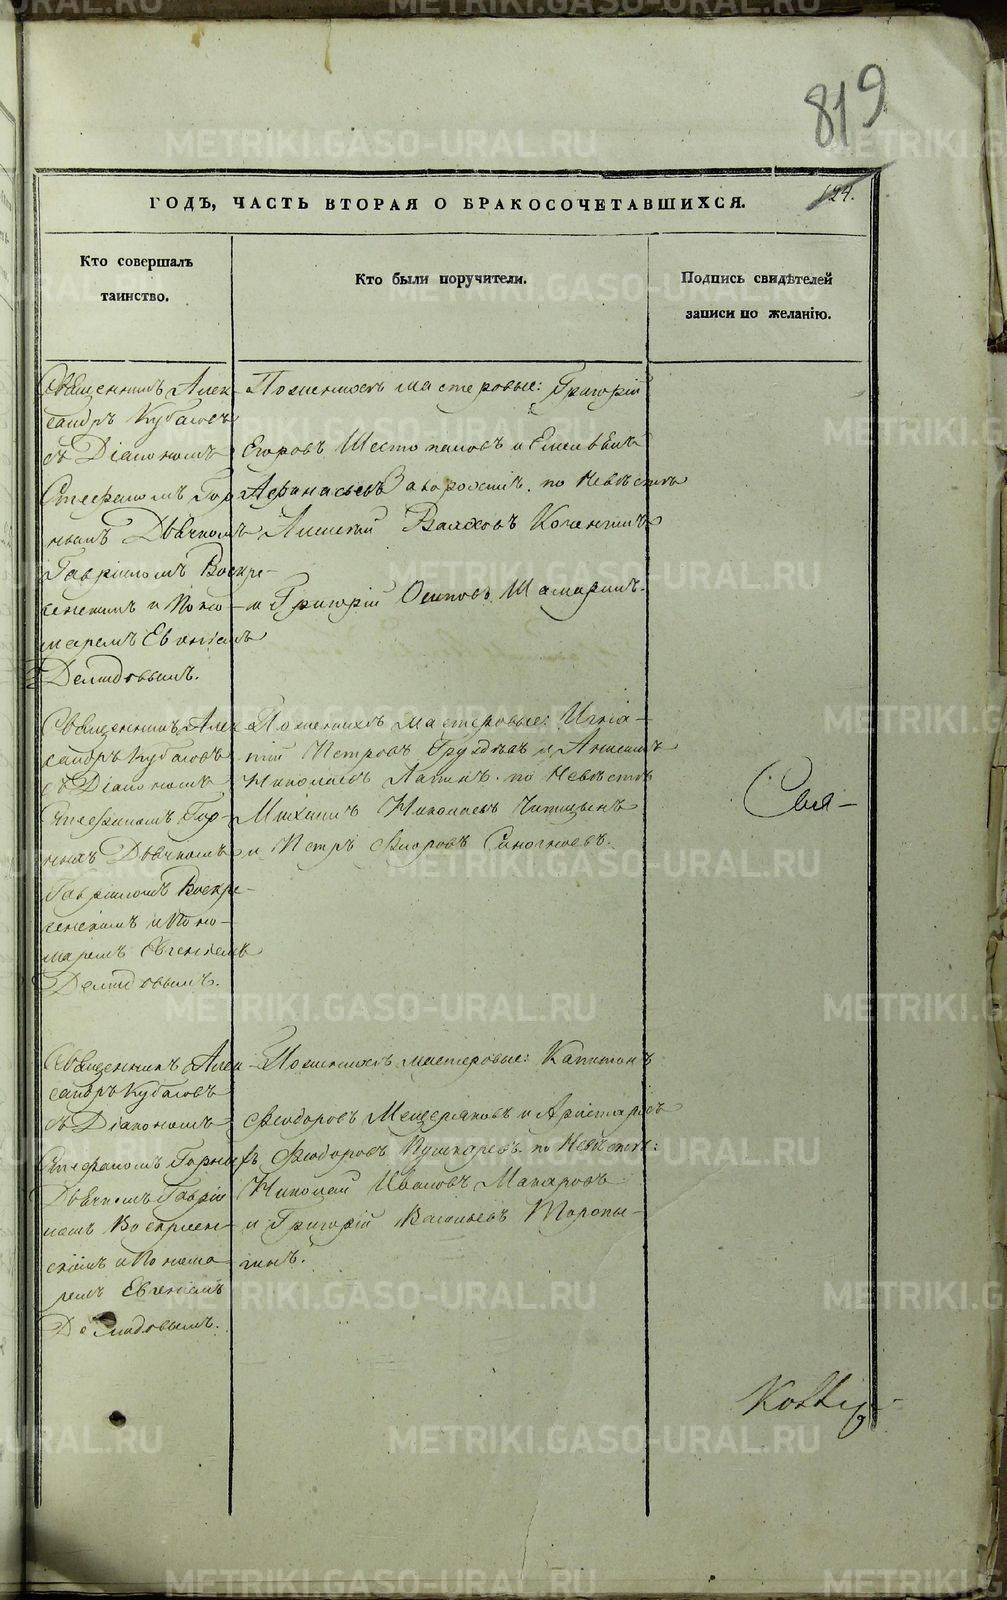 819
124.
ГОДЪ, ЧАСТЬ ВТОРАЯ О БРАКОСОЧЕТАВШИХСЯ.
Кто совершалъ
таинство.
Кто были поручители.
Подпись свидѣтелей
записи по желанію.
Священникъ Алек-
сандръ Кубасовъ
съ Діакономъ
Стефаномъ Гор-
нымъ Дьячкомъ
Гавріиломъ Воскре-
сенскимъ и Поно-
маремъ Евгеніемъ
Демидовымъ.
По женихѣ мастеровые: Григорій
Егоровъ Шестопаловъ и
Афанасьевъ по невѣстѣ
Алексѣй
и Григорій Осиповъ Шамаринъ.
Священникъ Алек
сандръ Кубасовъ
съ Діакономъ
Стефаномъ Гор-
нымъ Дьячкомъ
Гавріиломъ Воскре-
сенскимъ и Поно-
маремъ Евгеніемъ
Демидовымъ.
По женихѣ мастеровые: Игна-
тій Петровъ Груздевъ и
Николаевъ Лапинъ. по невѣстѣ
Михаилъ Николаевъ
и Петръ Фиоровъ Синогноевъ.
Свя-
Священникъ Алек
сандръ Кубасовъ
съ Діакономъ
Стефаномъ Горны
Дьячкомъ Гаврiи
ломъ Воскресен-
скимъ и Понома
ремъ Евгеніемъ
Демидовымъ.
По женихѣ мастеровые: Капитонъ
Феодоровъ Мещеряковъ и Аристархъ
Феодоровъ Пушкаревъ. по Невѣстѣ:
Николай Ивановъ Макаровъ
и Григорій Васильевъ Торопы-
гинъ.
METRIKI.GASO-URAL.RU